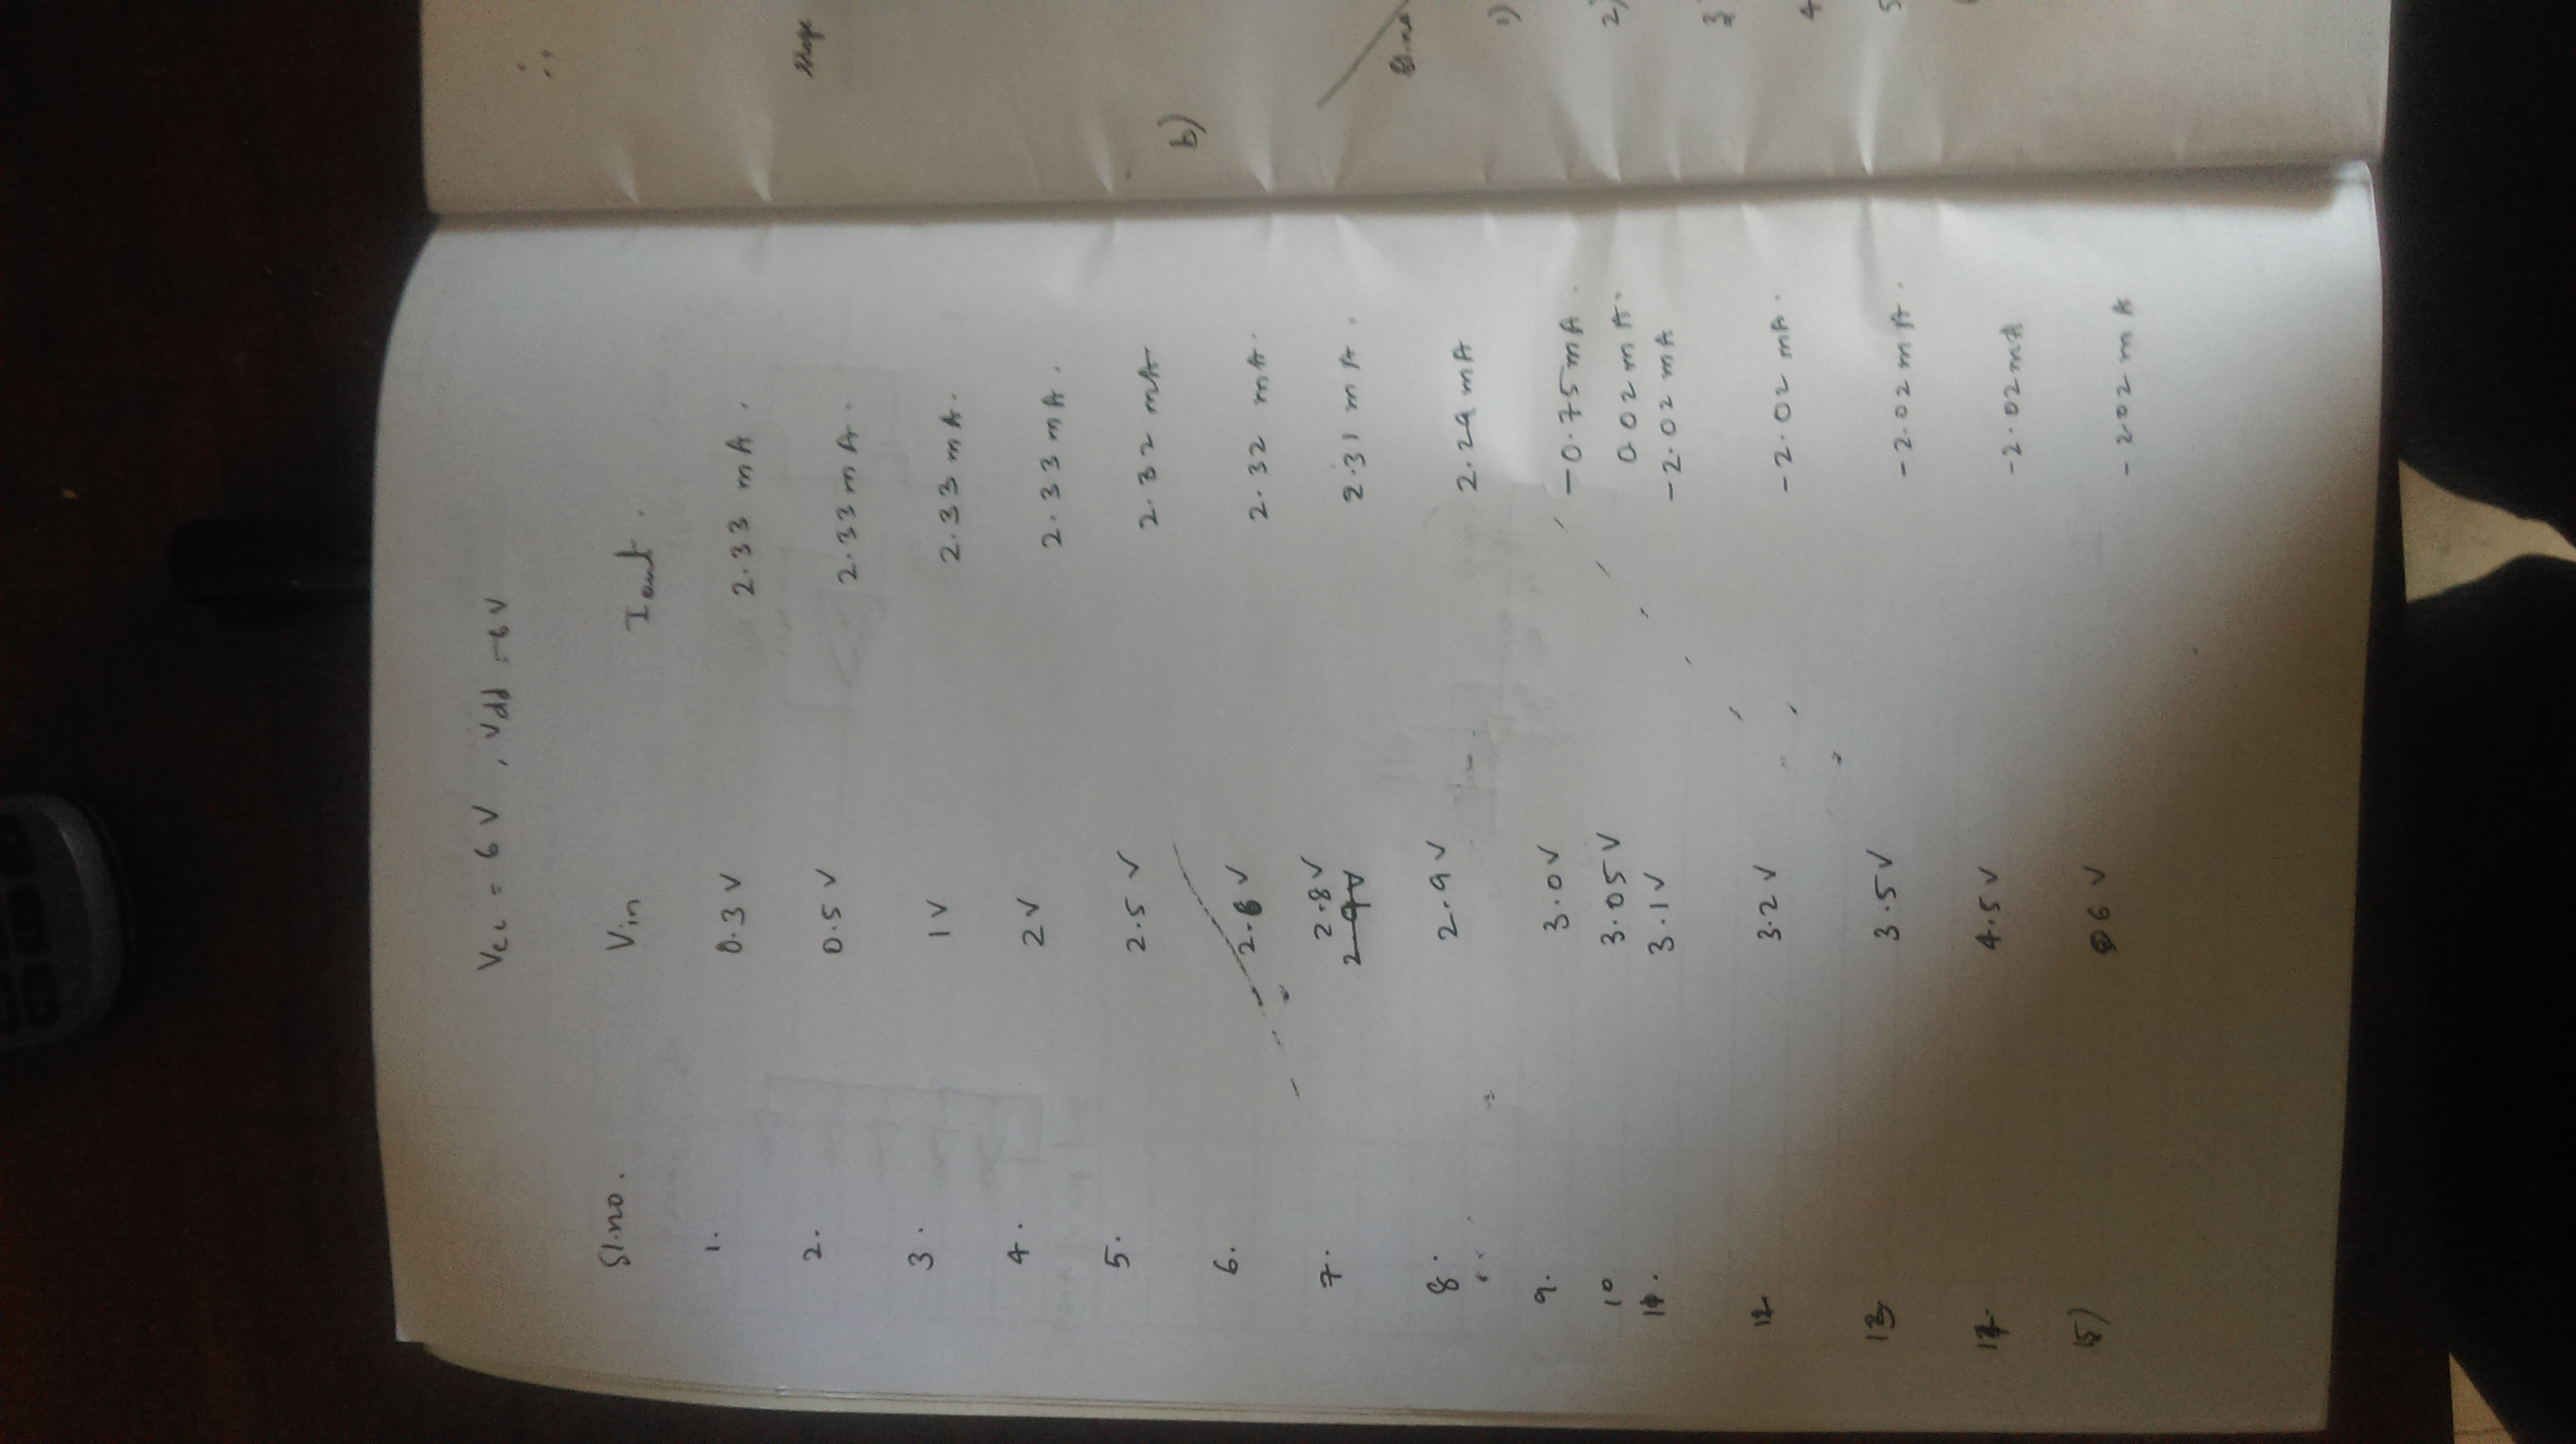 Vcc = 6 V , Vdd = -6 V
Sl.no. Vin Iout.
1. 0.3 V 2.33 mA.
2. 0.5 V 2.33 mA.
3. 1 V 2.33 mA.
4. 2 V 2.33 mA.
5. 2.5 V 2.32 mA
6. 2.6 V 2.32 mA.
7. 2.8 V 2.31 mA.
2.9V
8. 2.9 V 2.29 mA
9. 3.0 V -0.75 mA.
10 3.05 V 0.02 mA.
11. 3.1 V -2.02 mA
12 3.2 V -2.02 mA.
13 3.5 V -2.02 mA.
14. 4.5 V -2.02 mA
15) 6 V -2.02 mA
∴
b)
Sl.no
1)
2)
3
4
5